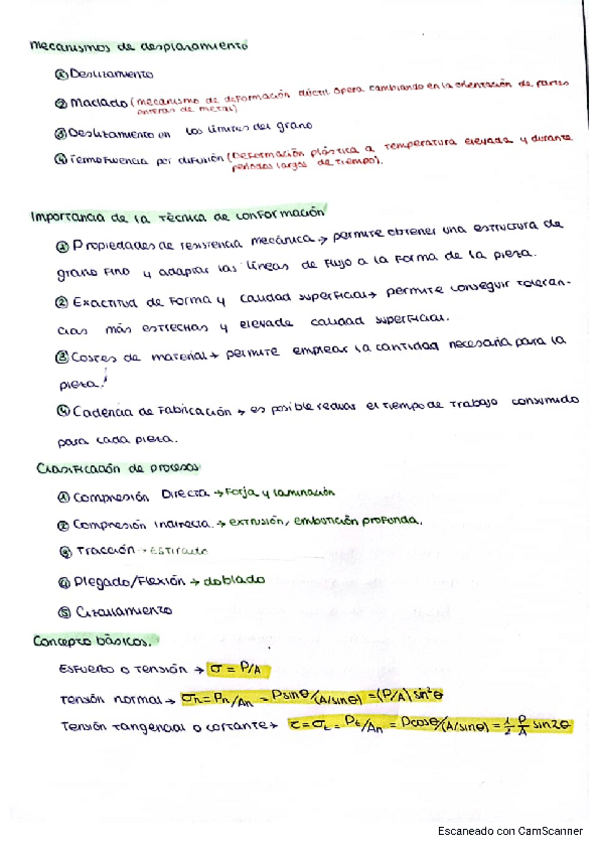 Mecanismos de desplazamiento
① Deslizamiento
② Maclado (mecanismo de deformación dúctil opera cambiando en la orientación de partes
enteras de metal)
③ Deslizamiento en los límites del grano
④ Termofluencia por difusión (Deformación plástica a temperatura elevada y durante
periodos largos de tiempo).
Importancia de la técnica de conformación
① Propiedades de resistencia mecánica → permite obtener una estructura de
grano fino y adaptar las líneas de flujo a la forma de la pieza.
② Exactitud de forma y calidad superficial → permite conseguir toleran-
cias más estrechas y elevada calidad superficial.
③ Costes de material → permite emplear la cantidad necesaria para la
pieza.
④ Cadencia de fabricación → es posible reducir el tiempo de trabajo consumido
para cada pieza.
Clasificación de procesos
① Compresión Directa → Forja y laminación
② Compresión indirecta → extrusión, embutición profunda.
③ Tracción → Estirado
④ Plegado/Flexión → doblado
⑤ Cizallamiento
Concepto básicos.
Esfuerzo o tensión → σ = P/A
Tensión normal → σn = Pn/An = P sinθ/(A/sinθ) = (P/A) sin²θ
Tensión tangencial o cortante → τ = σt = Pt/An = P cosθ/(A/sinθ) = 1/2 P/A sin2θ
Escaneado con CamScanner